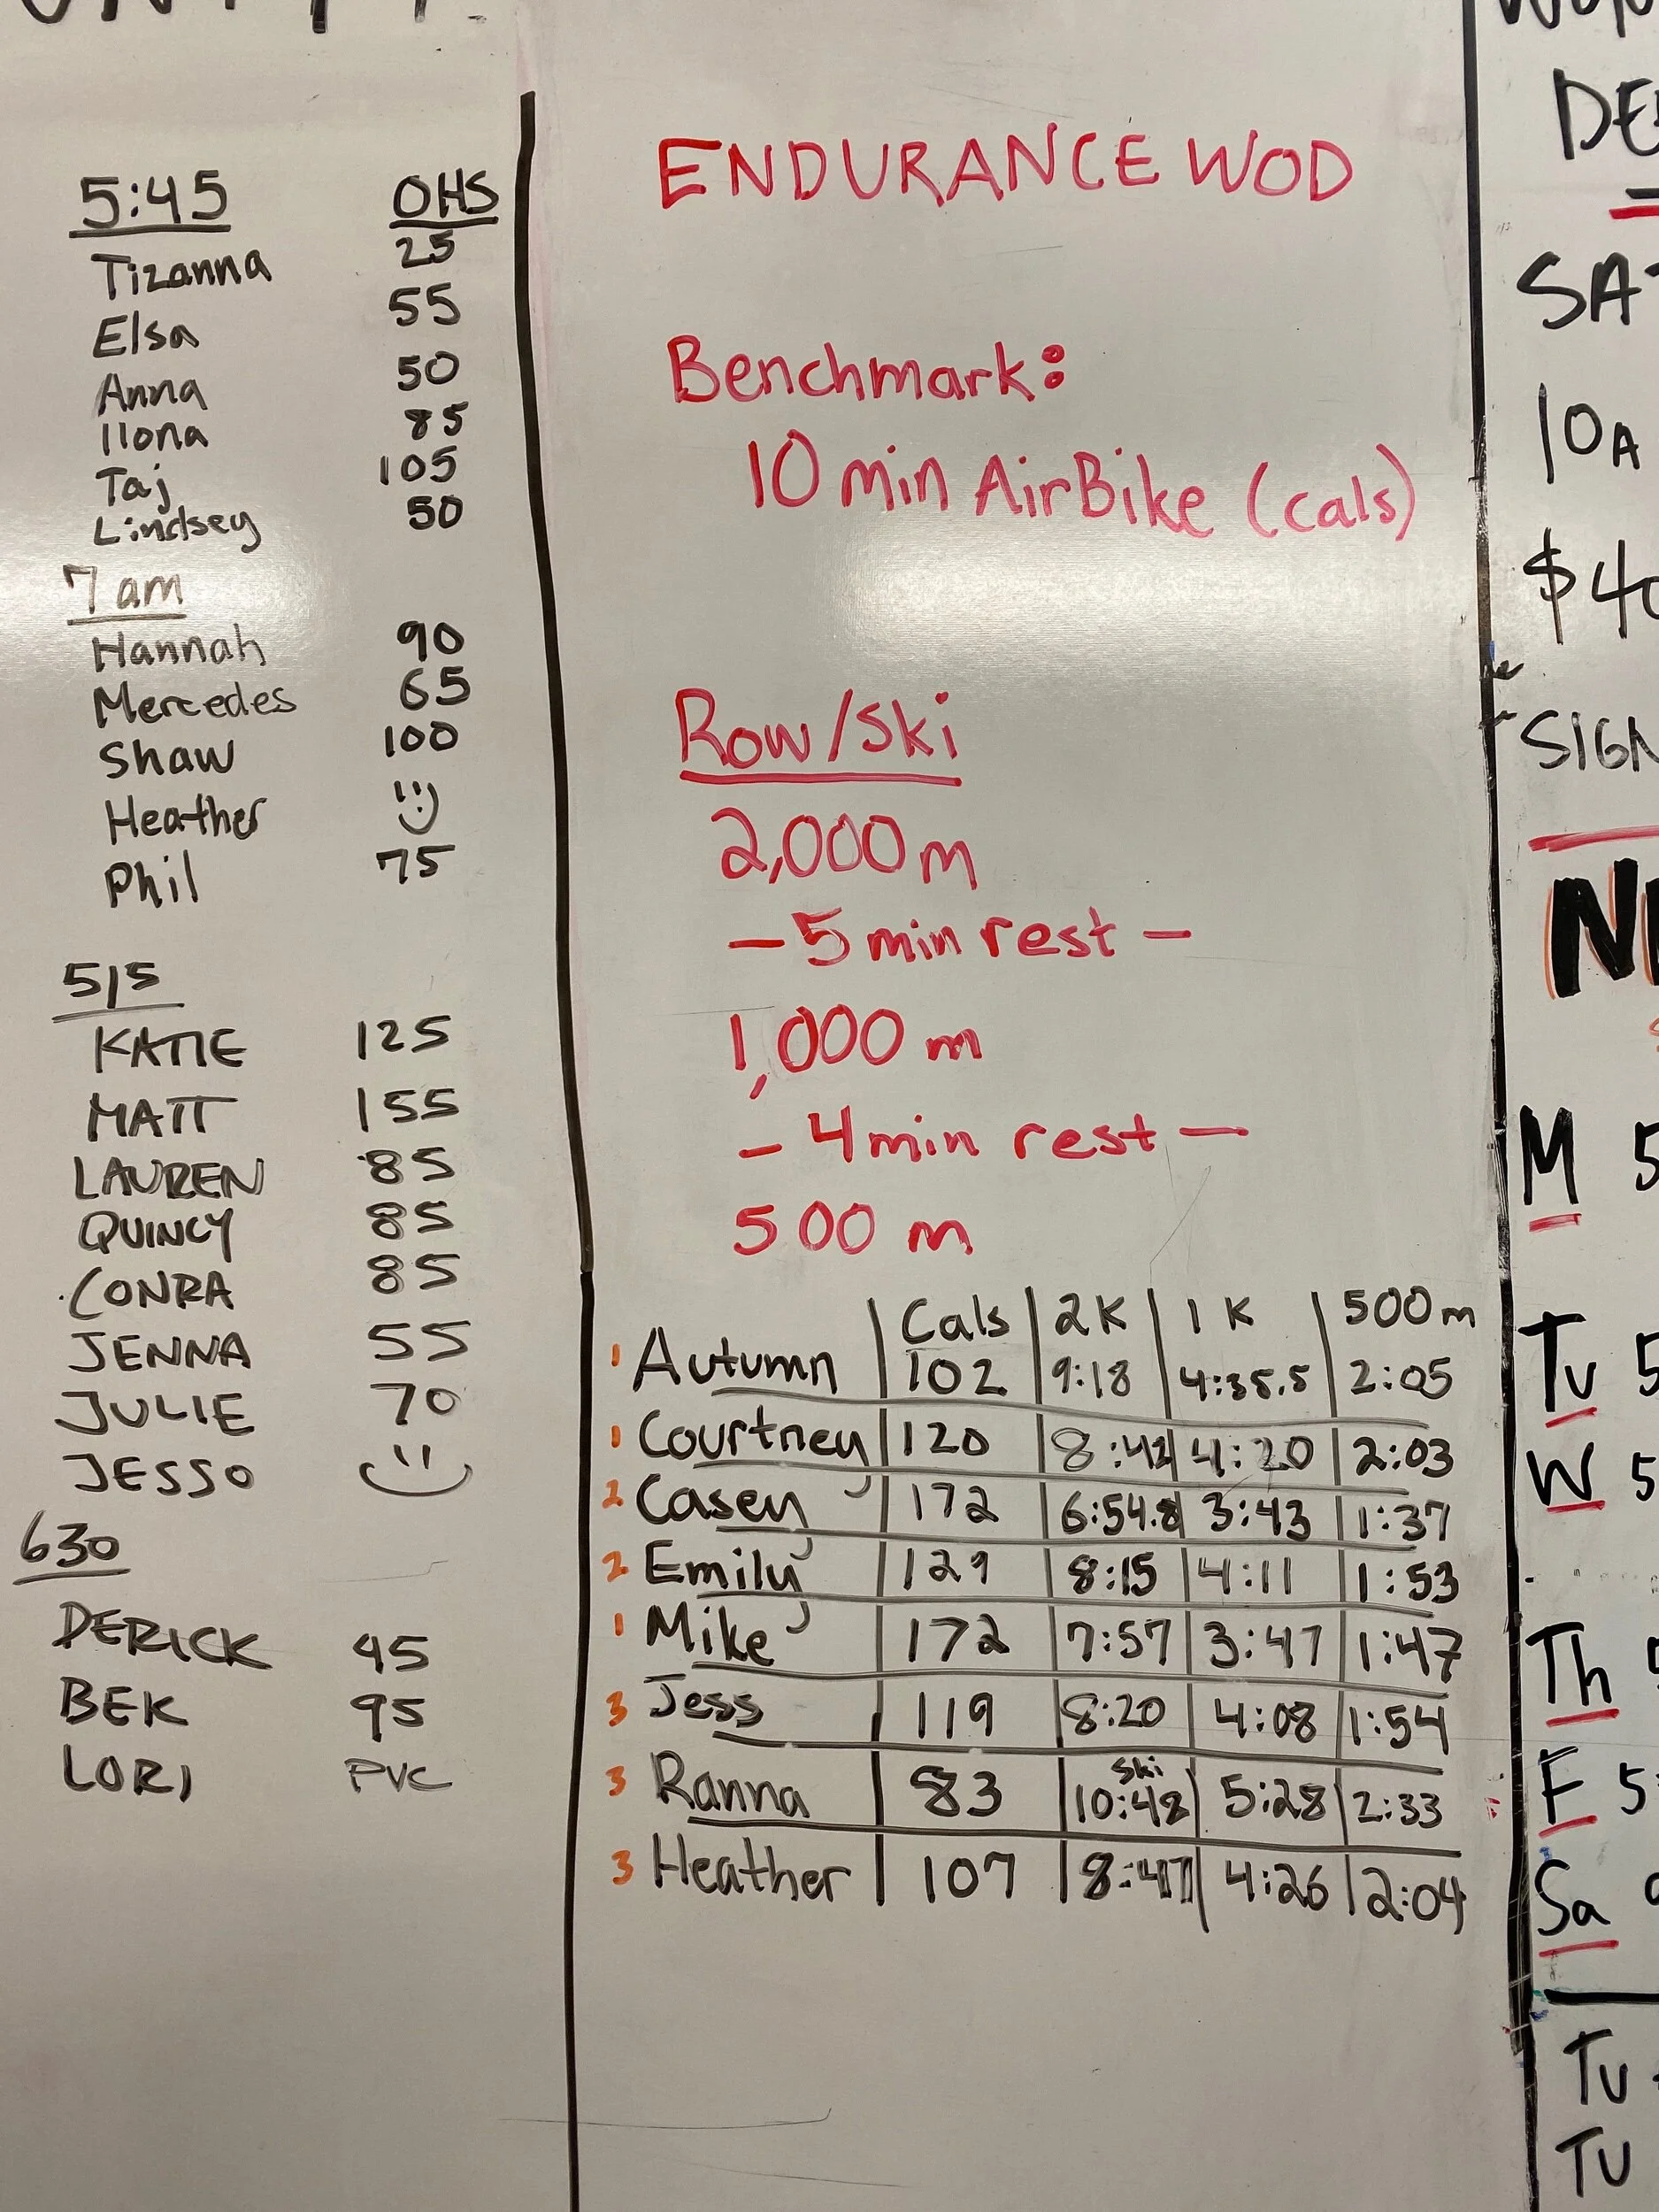 5:45 OHS
Tizanna 25
Elsa 55
Anna 50
Ilona 85
Taj 105
Lindsey 50
7 am
Hannah 90
Mercedes 65
Shaw 100
Heather :)
Phil 75
515
KATIE 125
MATT 155
LAUREN 85
QUINCY 85
CONRA 85
JENNA 55
JULIE 70
JESSO
630
DERICK 95
BEK 95
LORI PVC
ENDURANCE WOD
Benchmark:
10 min AirBike (cals)
Row/Ski
2,000 m
- 5 min rest -
1,000 m
- 4 min rest -
500 m
Cals 2K 1K 500m
1 Autumn 102 9:18 4:35.5 2:05
1 Courtney 120 8:42 4:20 2:03
2 Casey 172 6:54.8 3:43 1:37
2 Emily 129 8:15 4:11 1:53
1 Mike 172 7:57 3:47 1:47
3 Jess 119 8:20 4:08 1:54
Ski
3 Ranna 83 10:48 5:28 2:33
3 Heather 107 8:47 4:26 2:04
DE
SAT
10A
$40
SIGN
M 5
Tu 5
W 5
Th 5
F 5:
Sa 9
Tu
Tu